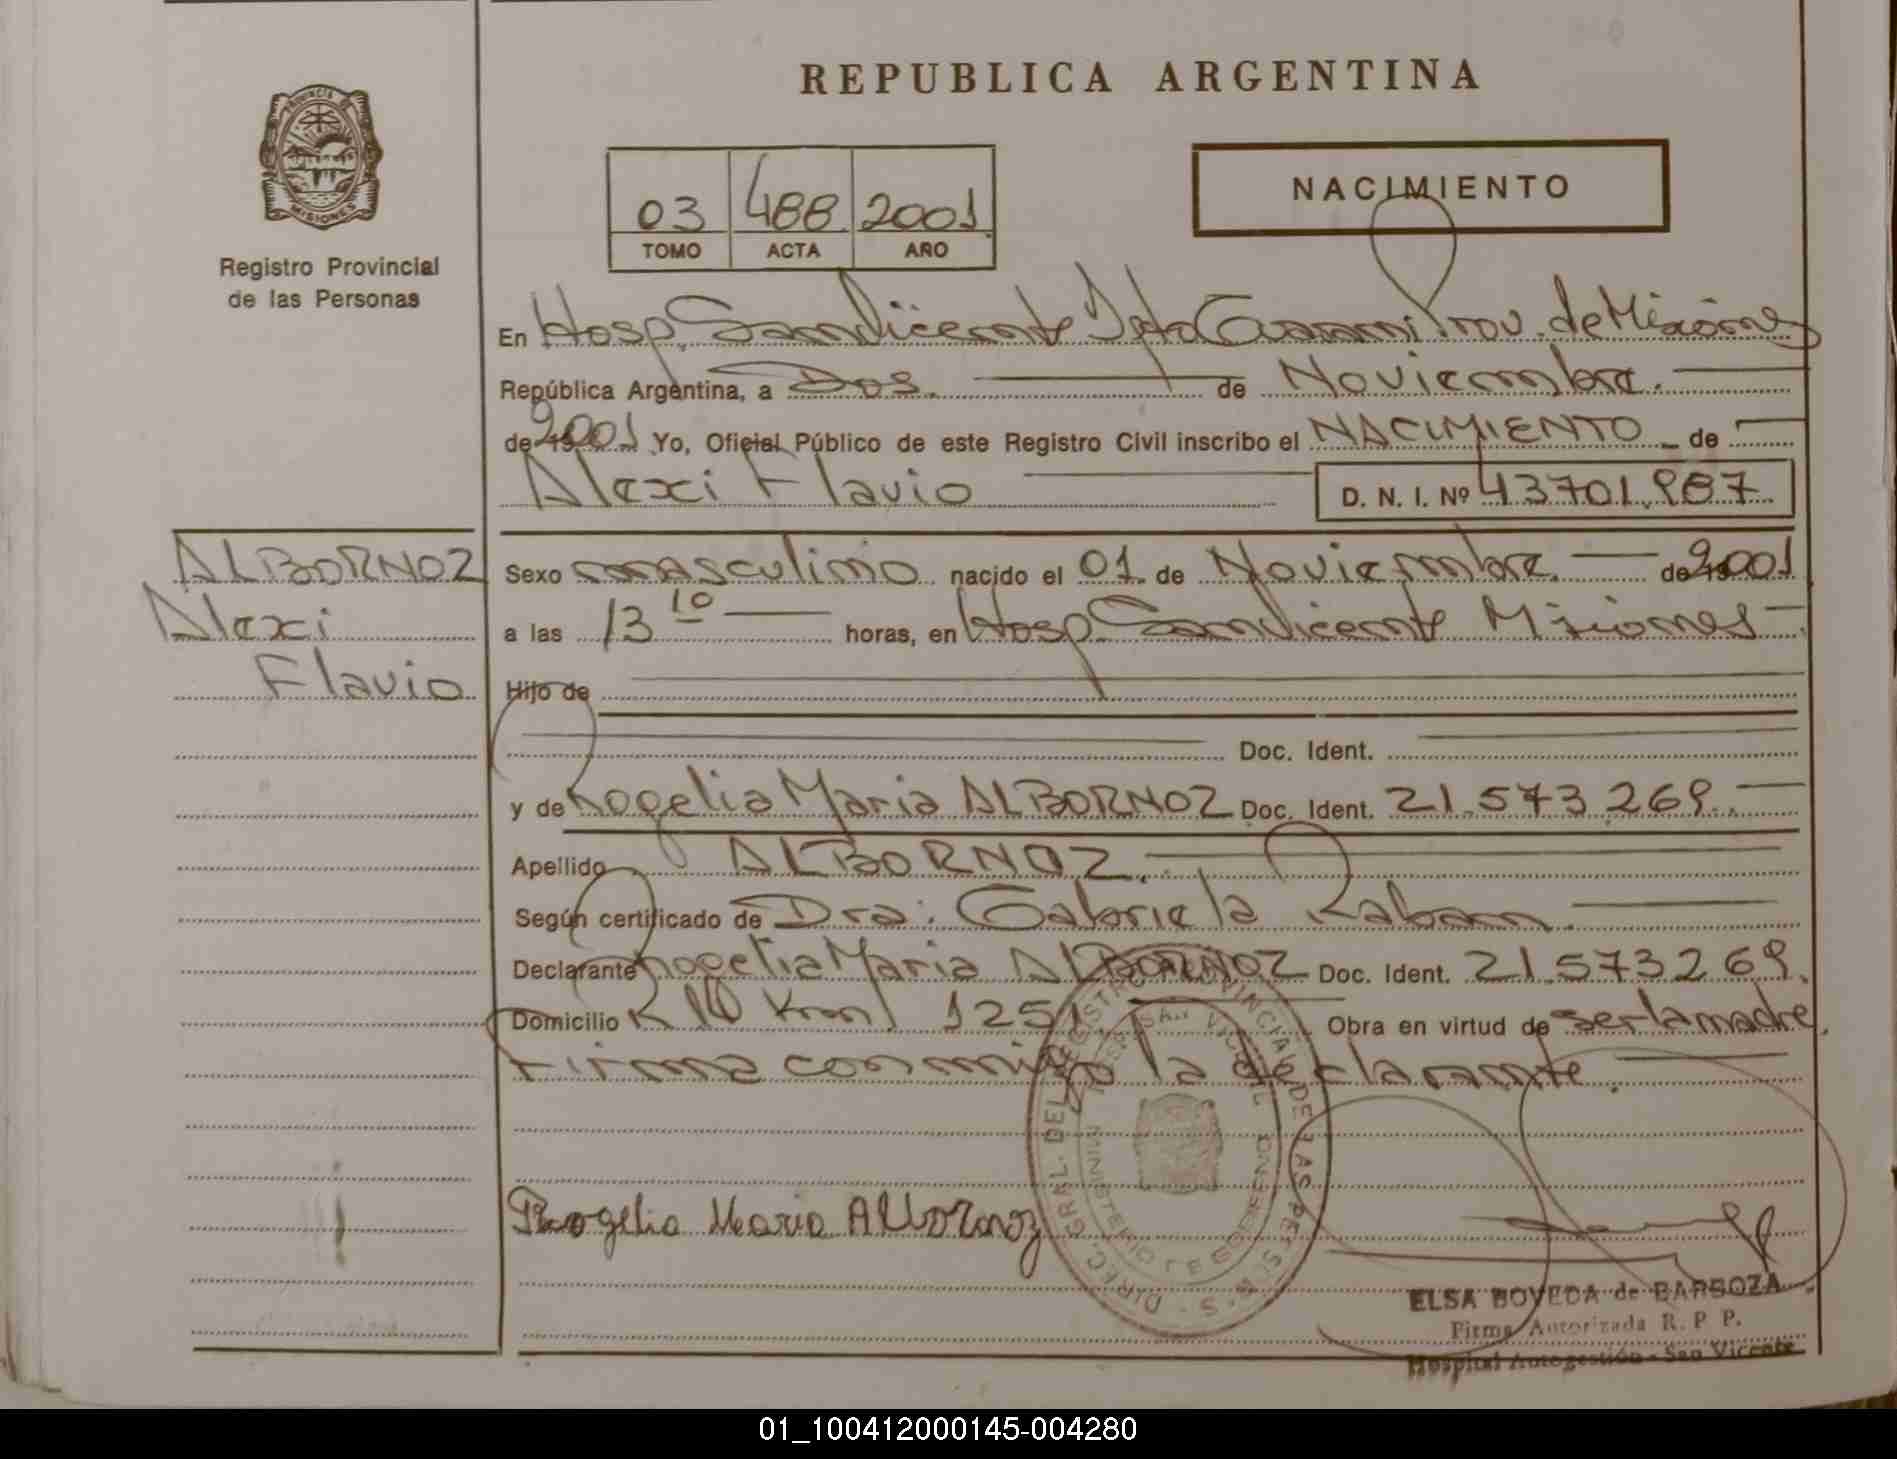 REPUBLICA ARGENTINA
PROVINCIA DE
MISIONES
Registro Provincial
de las Personas
03 488 2001
TOMO ACTA AÑO
NACIMIENTO
En Hosp. San Vicente Dpto Guarani Prov. de Misiones
República Argentina, a Dos. de Noviembre.
de 2001 Yo, Oficial Público de este Registro Civil inscribo el NACIMIENTO de
Alexi Flavio D. N. I. Nº 43701.987
ALBORNOZ
Alexi
Flavio
Sexo masculino nacido el 01 de Noviembre. de 2001
a las 13 10 horas, en Hosp. San Vicente Misiones
Hijo de
Doc. Ident.
y de Rogelia Maria ALBORNOZ Doc. Ident. 21.573.269.
Apellido ALBORNOZ.
Según certificado de Dra. Gabriela Raban
Declarante Rogelia Maria ALBORNOZ Doc. Ident. 21.573269.
Domicilio R 14 Km 1251 Obra en virtud de ser la madre.
Firma conmigo la declarante.
Rogelia Maria Albornoz
DIREC. GRAL. DEL REGISTRO PROVINCIAL DE LAS PERSONAS
SAN VICENTE
MINISTERIO DE GOBIERNO
ELSA BOVEDA de BARBOZA
Firma Autorizada R. P. P.
Hospital Autogestión - San Vicente
01_100412000145-004280